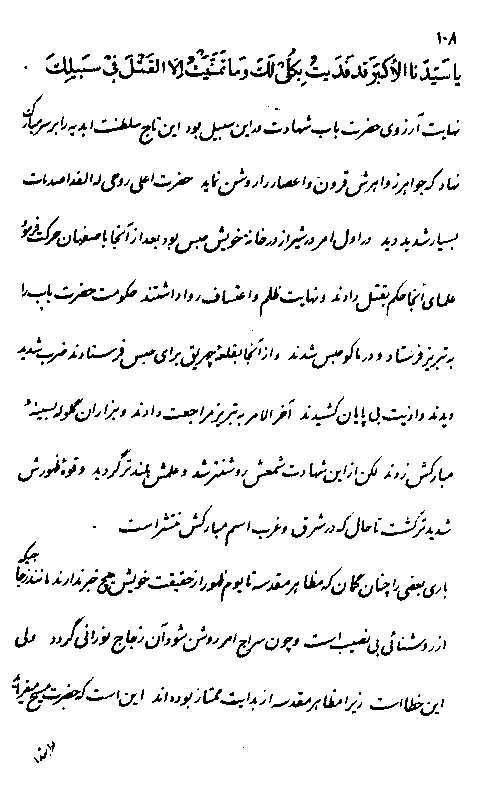 ۱۰۸
یا سَیِّدَنَا الْأَکْبَرَ قَدْ فَدَیْتُ بِکُلِّی لَکَ وَمَا تَمَنَّیْتُ اِلَّا الْقَتْلَ فِیْ سَبِیْلِکَ .
نهایت آرزوی حضرت باب شهادت در این سبیل بود این تاج سلطنت ابدیه را بر سر مبارک
نهاد که جواهر زواهرش قرون و اعصار را روشن نماید حضرت اعلی روحی له الفدا صدمات
بسیار شدید دید در اول امر در شیراز در خانهٔ خویش حبس بود بعد از آنجا باصفهان حرکت فرمود
علمای آنجا حکم بقتل دادند و نهایت ظلم و اعتساف روا داشتند حکومت حضرت باب را
به تبریز فرستاد و در ماکو حبس شدند و از آنجا بقلعهٔ چهریق برای حبس فرستادند ضرب شدید
دیدند و اذیت بی پایان کشیدند آخر الامر به تبریز مراجعت دادند و هزاران گلوله بسینهٔ
مبارکش زدند لکن از این شهادت شمعش روشنتر شد و علمش بلندتر گردید و قوهٔ ظهورش
شدیدتر گشت تا حال که در شرق و غرب اسم مبارکش منتشر است .
باری بعضی را چنان گمان که مظاهر مقدسه تا یوم ظهور از حقیقت خویش هیچ خبر ندارند مانند زجاجیکه
از روشنائی بی نصیب است و چون سراج امر روشن شود آن زجاج نورانی گردد ولی
این خطا است زیرا مظاهر مقدسه از بدایت ممتاز بوده اند این است که حضرت مسیح میفرماید